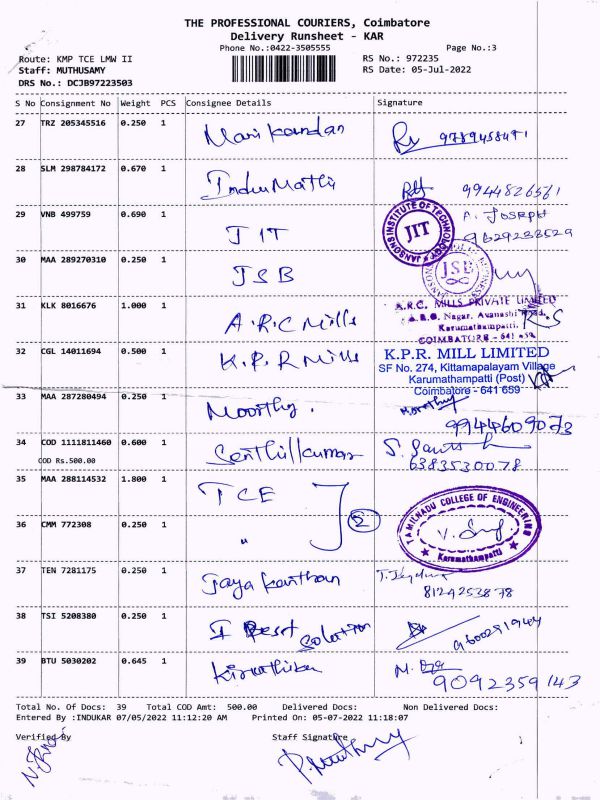 THE PROFESSIONAL COURIERS, Coimbatore
Delivery Runsheet - KAR
Phone No.:0422-3505555 Page No.:3
Route: KMP TCE LMW II RS No.: 972235
Staff: MUTHUSAMY RS Date: 05-Jul-2022
DRS No.: DCJB97223503
S No Consignment No Weight PCS Consignee Details Signature
27 TRZ 205345516 0.250 1 Mani Kandan
28 SLM 298784172 0.670 1 IndhuMathi 9944826561
29 VNB 499759 0.690 1 JIT A. JOSEPH
JANSONS INSTITUTE OF TECHNOLOGY
JIT
30 MAA 289270310 0.250 1 JSB
JSB
31 KLK 8016676 1.000 1 A.R.C Mills
A.R.C. MILLS PRIVATE LIMITED
A.R.C. Nagar, Avanashi Road,
Karumathampatti.
COIMBATORE - 641 659
R.S
32 CGL 14011694 0.500 1 K.P.R Mills
K.P.R. MILL LIMITED
SF No. 274, Kittamapalayam Village
Karumathampatti (Post)
Coimbatore - 641 659
33 MAA 287280494 0.250 1 Moorthy. Moorthy
9944609073
34 COD 1111811460 0.600 1 Senthilkumar
COD Rs.500.00 6383530078
35 MAA 288114532 1.800 1 TCE
2
36 CMM 772308 0.250 1 "
TAMILNADU COLLEGE OF ENGINEERING
Karumathampatti
37 TEN 7281175 0.250 1 Jaya Kanthan
8124253878
38 TSI 5208380 0.250 1 I Best Solution 9600291944
39 BTU 5030202 0.645 1 Kiruthika
9092359143
Total No. Of Docs: 39 Total COD Amt: 500.00 Delivered Docs: Non Delivered Docs:
Entered By :INDUKAR 07/05/2022 11:12:20 AM Printed On: 05-07-2022 11:18:07
Verified By Staff Signature